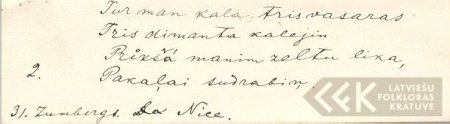 Tur man kala trīs vasaras
Trīs dimanta kalējiņ
Prīkšā manim zeltu lika,
2. Pakaļai sudrabiņ.
31. Zumbergs. La Nice.
LATVIEŠU
FOLKLORAS
KRATUVE